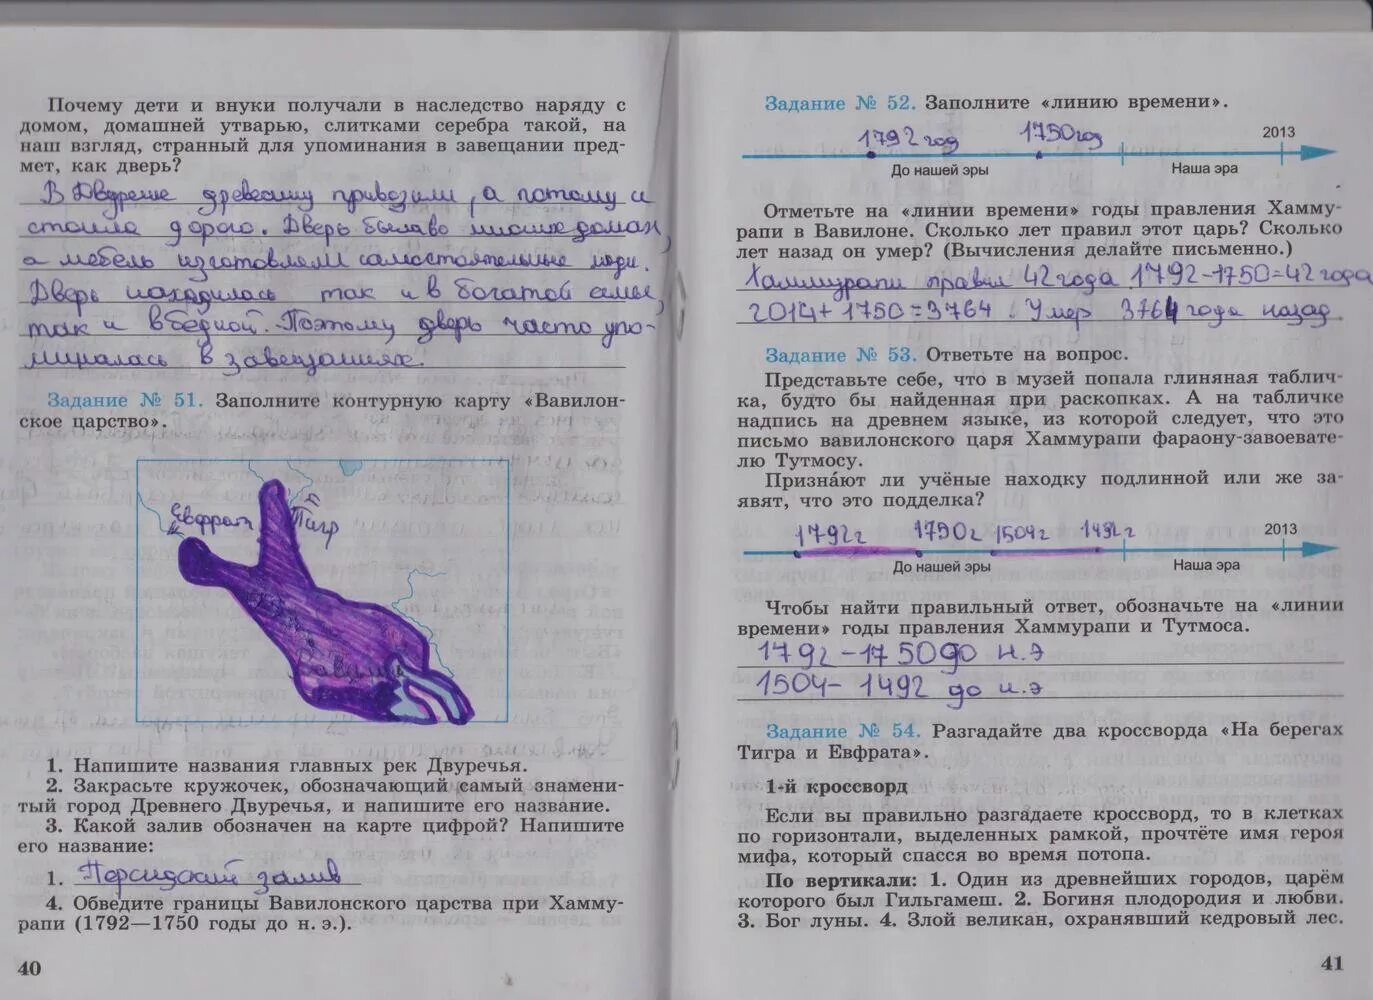 Почему дети и внуки получали в наследство наряду с
домом, домашней утварью, слитками серебра такой, на
наш взгляд, странный для упоминания в завещании пред-
мет, как дверь?
В Двуречье древесину привозили, а потому и
стоила дорого. Дверь была во многих домах,
а мебель изготовляли самостоятельные люди.
Дверь находилась так и в богатой семье,
так и в бедной. Поэтому дверь часто упо-
миналась в завещаниях.
Задание № 51. Заполните контурную карту «Вавилон-
ское царство».
Евфрат
Тигр
Вавилон
1. Напишите названия главных рек Двуречья.
2. Закрасьте кружочек, обозначающий самый знамени-
тый город Древнего Двуречья, и напишите его название.
3. Какой залив обозначен на карте цифрой? Напишите
его название:
1. Персидский залив
4. Обведите границы Вавилонского царства при Хамму-
рапи (1792—1750 годы до н. э.).
40
Задание № 52. Заполните «линию времени».
1792 год 1750 год 2013
До нашей эры Наша эра
Отметьте на «линии времени» годы правления Хамму-
рапи в Вавилоне. Сколько лет правил этот царь? Сколько
лет назад он умер? (Вычисления делайте письменно.)
Хаммурапи правил 42 года 1792-1750=42 года
2014+1750=3764. Умер 3764 года назад.
Задание № 53. Ответьте на вопрос.
Представьте себе, что в музей попала глиняная таблич-
ка, будто бы найденная при раскопках. А на табличке
надпись на древнем языке, из которой следует, что это
письмо вавилонского царя Хаммурапи фараону-завоевате-
лю Тутмосу.
Признáют ли учёные находку подлинной или же за-
явят, что это подделка?
1792г 1750г 1504г 1492г 2013
До нашей эры Наша эра
Чтобы найти правильный ответ, обозначьте на «линии
времени» годы правления Хаммурапи и Тутмоса.
1792-1750 до н.э
1504-1492 до н.э
Задание № 54. Разгадайте два кроссворда «На берегах
Тигра и Евфрата».
1-й кроссворд
Если вы правильно разгадаете кроссворд, то в клетках
по горизонтали, выделенных рамкой, прочтёте имя героя
мифа, который спасся во время потопа.
По вертикали: 1. Один из древнейших городов, царём
которого был Гильгамеш. 2. Богиня плодородия и любви.
3. Бог луны. 4. Злой великан, охранявший кедровый лес.
41